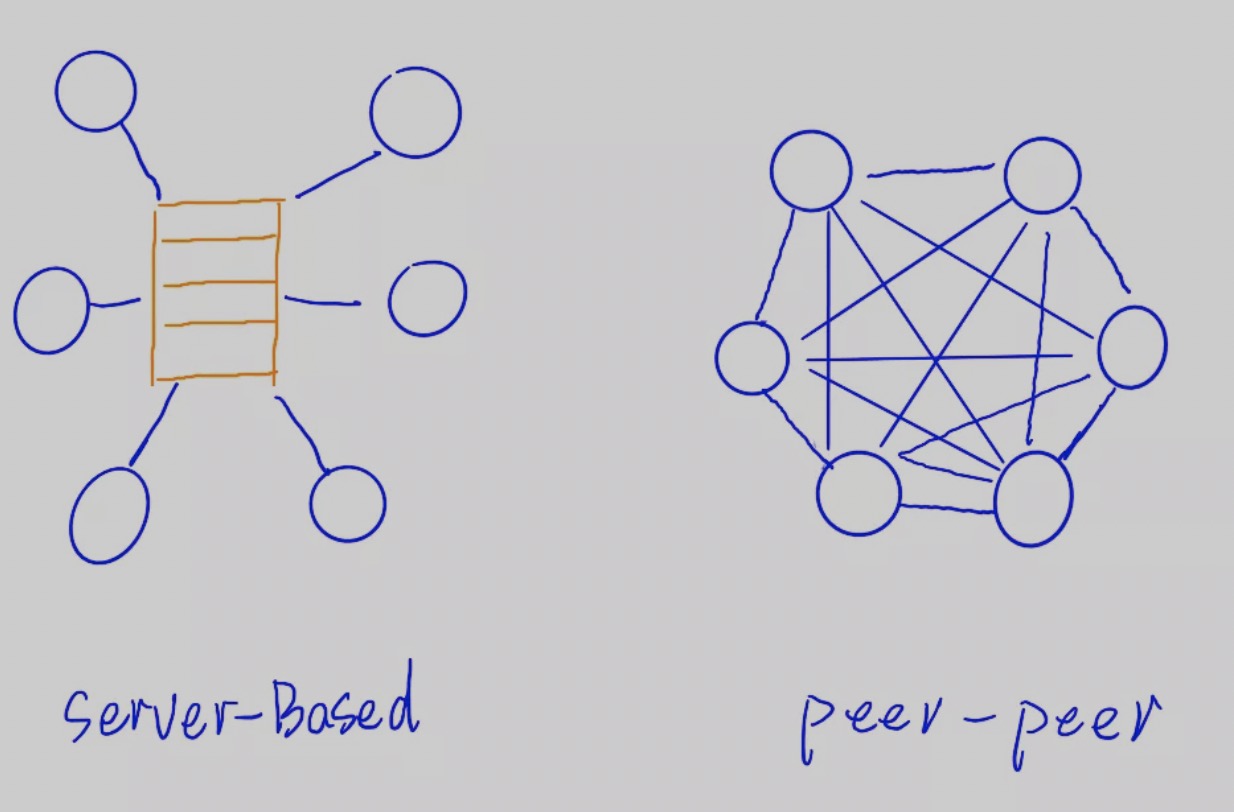 Server-Based
peer-peer